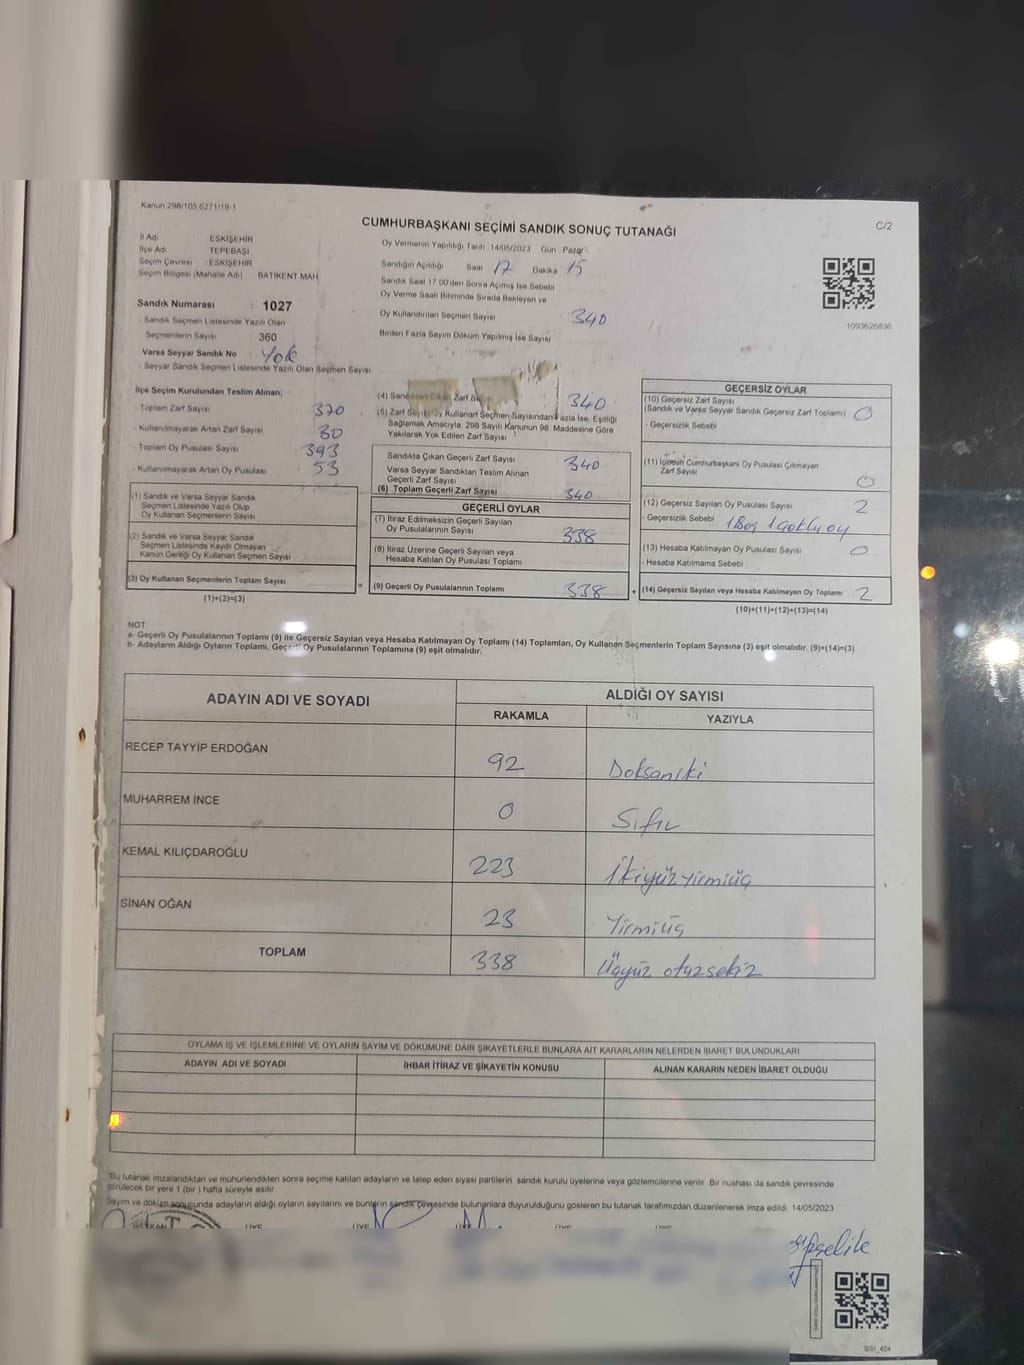 Kanun 298/105 6271/18-1
CUMHURBAŞKANI SEÇİMİ SANDIK SONUÇ TUTANAĞI
C/2
İl Adı ESKİŞEHİR
İlçe Adı TEPEBAŞI
Seçim Çevresi : ESKİŞEHİR
Seçim Bölgesi (Mahalle Adı) BATIKENT MAH
Sandık Numarası : 1027
- Sandık Seçmen Listesinde Yazılı Olan
Seçmenlerin Sayısı : 360
Varsa Seyyar Sandık No : Yok
- Seyyar Sandık Seçmen Listesinde Yazılı Olan Seçmen Sayısı
Oy Vermenin Yapıldığı Tarih :14/05/2023 Gün Pazar
Sandığın Açıldığı Saat 17 Dakika 15
Sandık Saat 17.00'den Sonra Açılmış İse Sebebi
Oy Verme Saati Bitiminde Sırada Bekleyen ve
Oy Kullandırılan Seçmen Sayısı 340
Birden Fazla Sayım Döküm Yapılmış İse Sayısı
1093626836
İlçe Seçim Kurulundan Teslim Alınan;
- Toplam Zarf Sayısı 370
- Kullanılmayarak Artan Zarf Sayısı 30
- Toplam Oy Pusulası Sayısı 393
- Kullanılmayarak Artan Oy Pusulası 53
(1) Sandık ve Varsa Seyyar Sandık
Seçmen Listesinde Yazılı Olup
Oy Kullanan Seçmenlerin Sayısı
(2) Sandık ve Varsa Seyyar Sandık
Seçmen Listesinde Kayıtlı Olmayan
Kanun Gereği Oy Kullanan Seçmen Sayısı
(3) Oy Kullanan Seçmenlerin Toplam Sayısı =
(1)+(2)=(3)
(4) Sandıktan Çıkan Zarf 340
(5) Zarf Sayısı Oy Kullanan Seçmen Sayısından Fazla İse, Eşitliği
Sağlamak Amacıyla, 298 Sayılı Kanunun 98. Maddesine Göre
Yakılarak Yok Edilen Zarf Sayısı
Sandıkla Çıkan Geçerli Zarf Sayısı 340
Varsa Seyyar Sandıktan Teslim Alınan
Geçerli Zarf Sayısı
(6) Toplam Geçerli Zarf Sayısı 340
GEÇERLİ OYLAR
(7) İtiraz Edilmeksizin Geçerli Sayılan
Oy Pusulalarının Sayısı 338
(8) İtiraz Üzerine Geçerli Sayılan veya
Hesaba Katılan Oy Pusulası Toplamı
(9) Geçerli Oy Pusulalarının Toplamı 338 +
GEÇERSİZ OYLAR
(10) Geçersiz Zarf Sayısı
(Sandık ve Varsa Seyyar Sandık Geçersiz Zarf Toplamı) 0
- Geçersizlik Sebebi
(11) İçinden Cumhurbaşkanı Oy Pusulası Çıkmayan
Zarf Sayısı 0
(12) Geçersiz Sayılan Oy Pusulası Sayısı 2
- Geçersizlik Sebebi 1 Boş 1 Çoklu oy
(13) Hesaba Katılmayan Oy Pusulası Sayısı 0
- Hesaba Katılmama Sebebi
(14) Geçersiz Sayılan veya Hesaba Katılmayan Oy Toplamı 2
(10)+(11)+(12)+(13)=(14)
NOT:
a- Geçerli Oy Pusulalarının Toplamı (9) ile Geçersiz Sayılan veya Hesaba Katılmayan Oy Toplamı (14) Toplamları, Oy Kullanan Seçmenlerin Toplam Sayısına (3) eşit olmalıdır. (9)+(14)=(3)
b- Adayların Aldığı Oyların Toplamı, Geçerli Oy Pusulalarının Toplamına (9) eşit olmalıdır.
ADAYIN ADI VE SOYADI ALDIĞI OY SAYISI
RAKAMLA YAZIYLA
RECEP TAYYİP ERDOĞAN 92 Doksaniki
MUHARREM İNCE 0 Sıfır
KEMAL KILIÇDAROĞLU 223 İkiyüzyirmiüç
SİNAN OĞAN 23 Yirmiüç
TOPLAM 338 Üçyüz otuzsekiz
OYLAMA İŞ VE İŞLEMLERİNE VE OYLARIN SAYIM VE DÖKÜMÜNE DAİR ŞİKAYETLERLE BUNLARA AİT KARARLARIN NELERDEN İBARET BULUNDUKLARI
ADAYIN ADI VE SOYADI İHBAR İTİRAZ VE ŞİKAYETİN KONUSU ALINAN KARARIN NEDEN İBARET OLDUĞU
*Bu tutanak imzalandıktan ve mühürlendikten sonra seçime katılan adayların ve talep eden siyasi partilerin sandık kurulu üyelerine veya gözlemcilerine verilir. Bir nüshası da sandık çevresinde
görülecek bir yere 1 (bir) hafta süreyle asılır.
Sayım ve döküm sonucunda adayların aldığı oyların sayılarını ve bunların sandık çevresinde bulunanlara duyurulduğunu gösteren bu tutanak tarafımızdan düzenlenerek imza edildi. 14/05/2023
BAŞKAN ÜYE ÜYE ÜYE ÜYE ÜYE
SSİ_404